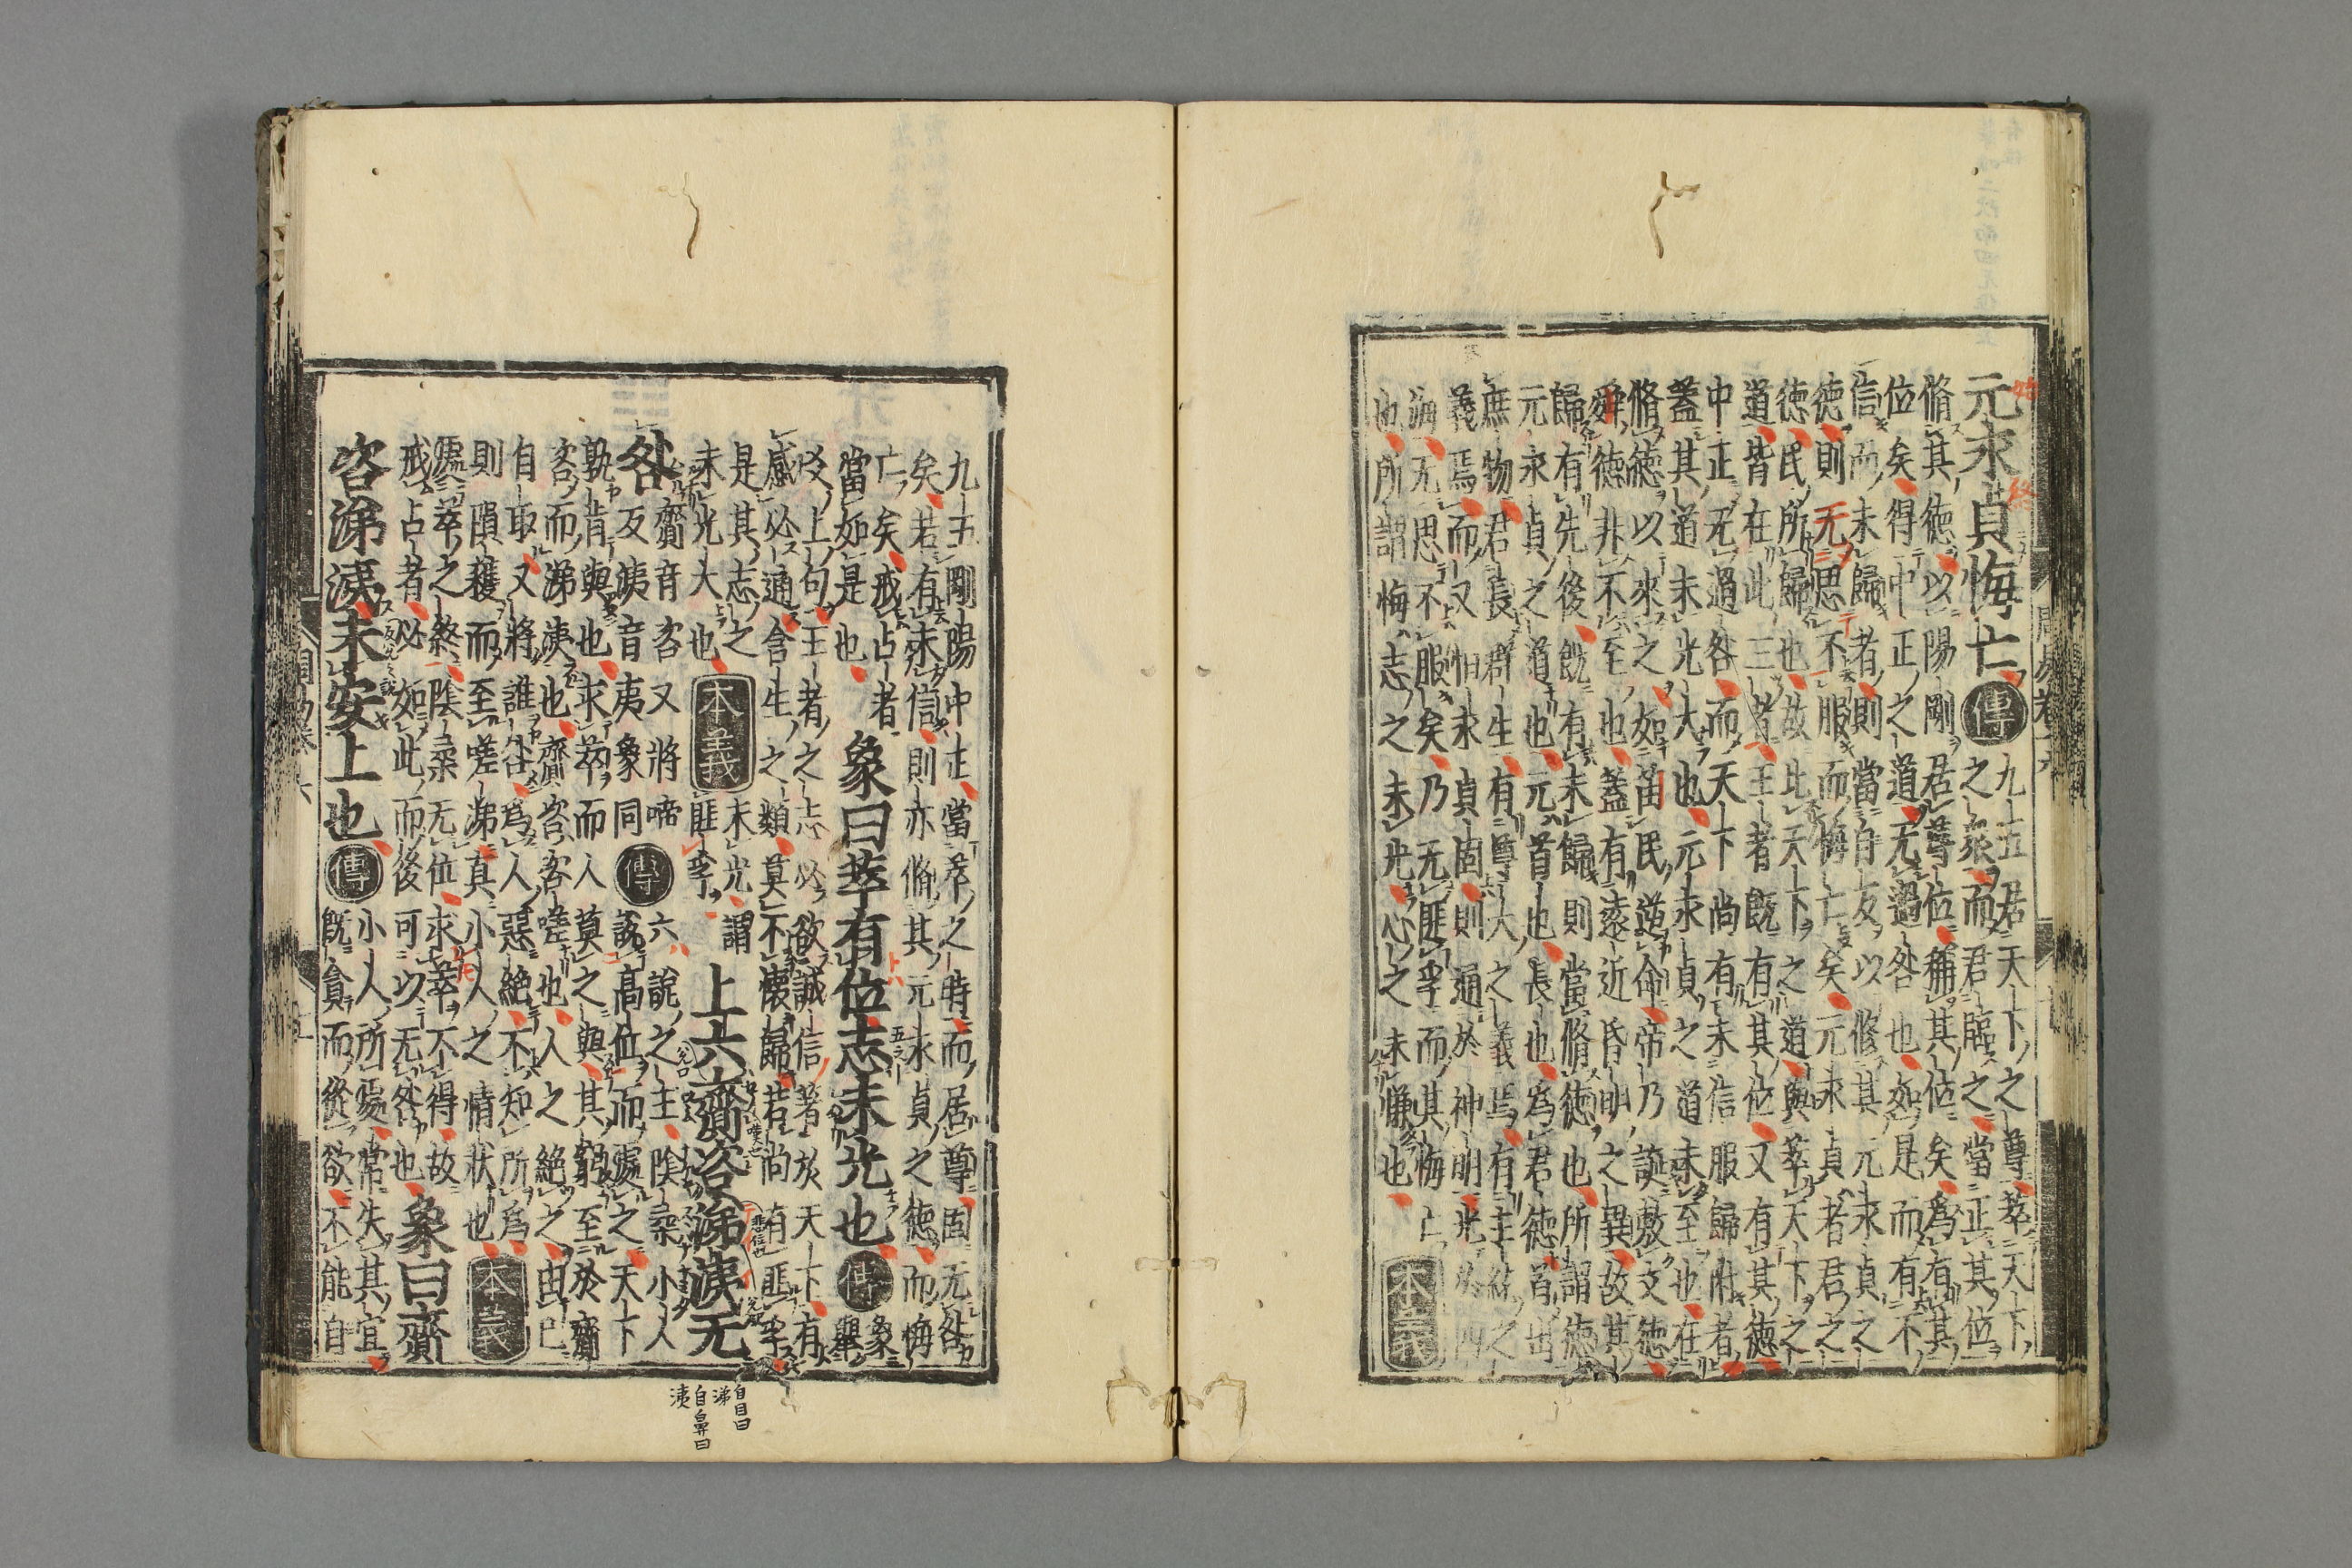 元永貞悔亡
傳
九五君天下之尊萃天下
之衆而君臨之當正其位
脩其德以陽剛居尊位稱其位矣爲有其
位矣得中正之道无過咎也如是而有不
信而未歸者則當自反以脩其元永貞之
德則无思不服而悔亡矣元永貞者君之
德民所歸也故比天下之道與萃天下之
道皆在此三者王者既有其位又有其德
中正无過咎而天下尚有未信服歸附者
蓋其道未光大也元永貞之道未至也在
脩德以來之如苗民逆命帝乃誕敷文德
舜德非不至也蓋有遠近昏明之異故其
歸有先後既有未歸則當脩德也所謂德
元永貞之道也元首也長也爲君德首出
庶物君長群生有尊大之義焉有主統之
義焉而又恒永貞固則通於神明光於四
海无思不服矣乃无匪孚而其悔亡
也所謂悔志之未光心之未慊也
本義
九五剛陽中正當萃之時而居尊固无咎
矣若有未信則亦脩其元永貞之德而悔
亡矣戒占者
當如是也
象曰萃有位志未光也
傳
象舉
爻上句王者之志必欲誠信著於天下有
感必通含生之類莫不懷歸若尚有匪孚
是其志之
未光大也
本義
未光謂
匪孚
上六齎咨涕洟无
咎
齎音咨又將啼
反洟音夷象同
傳
六說之主陰柔小人
說高位而處之天下
孰肯與也求萃而人莫之與其窮至於齎
咨而涕洟也齎咨咨嗟也人之絶之由己
自取又將誰咎爲人惡絶不知所爲
則隕穫而至嗟涕真小人之情狀也
本義
處萃之終陰柔无位求萃不得故
戒占者必如此而後可以无咎也
象曰齎
咨涕洟未安上也
傳
小人所處常失其宜
既貪而從欲不能自
自目曰
涕
自鼻曰
洟